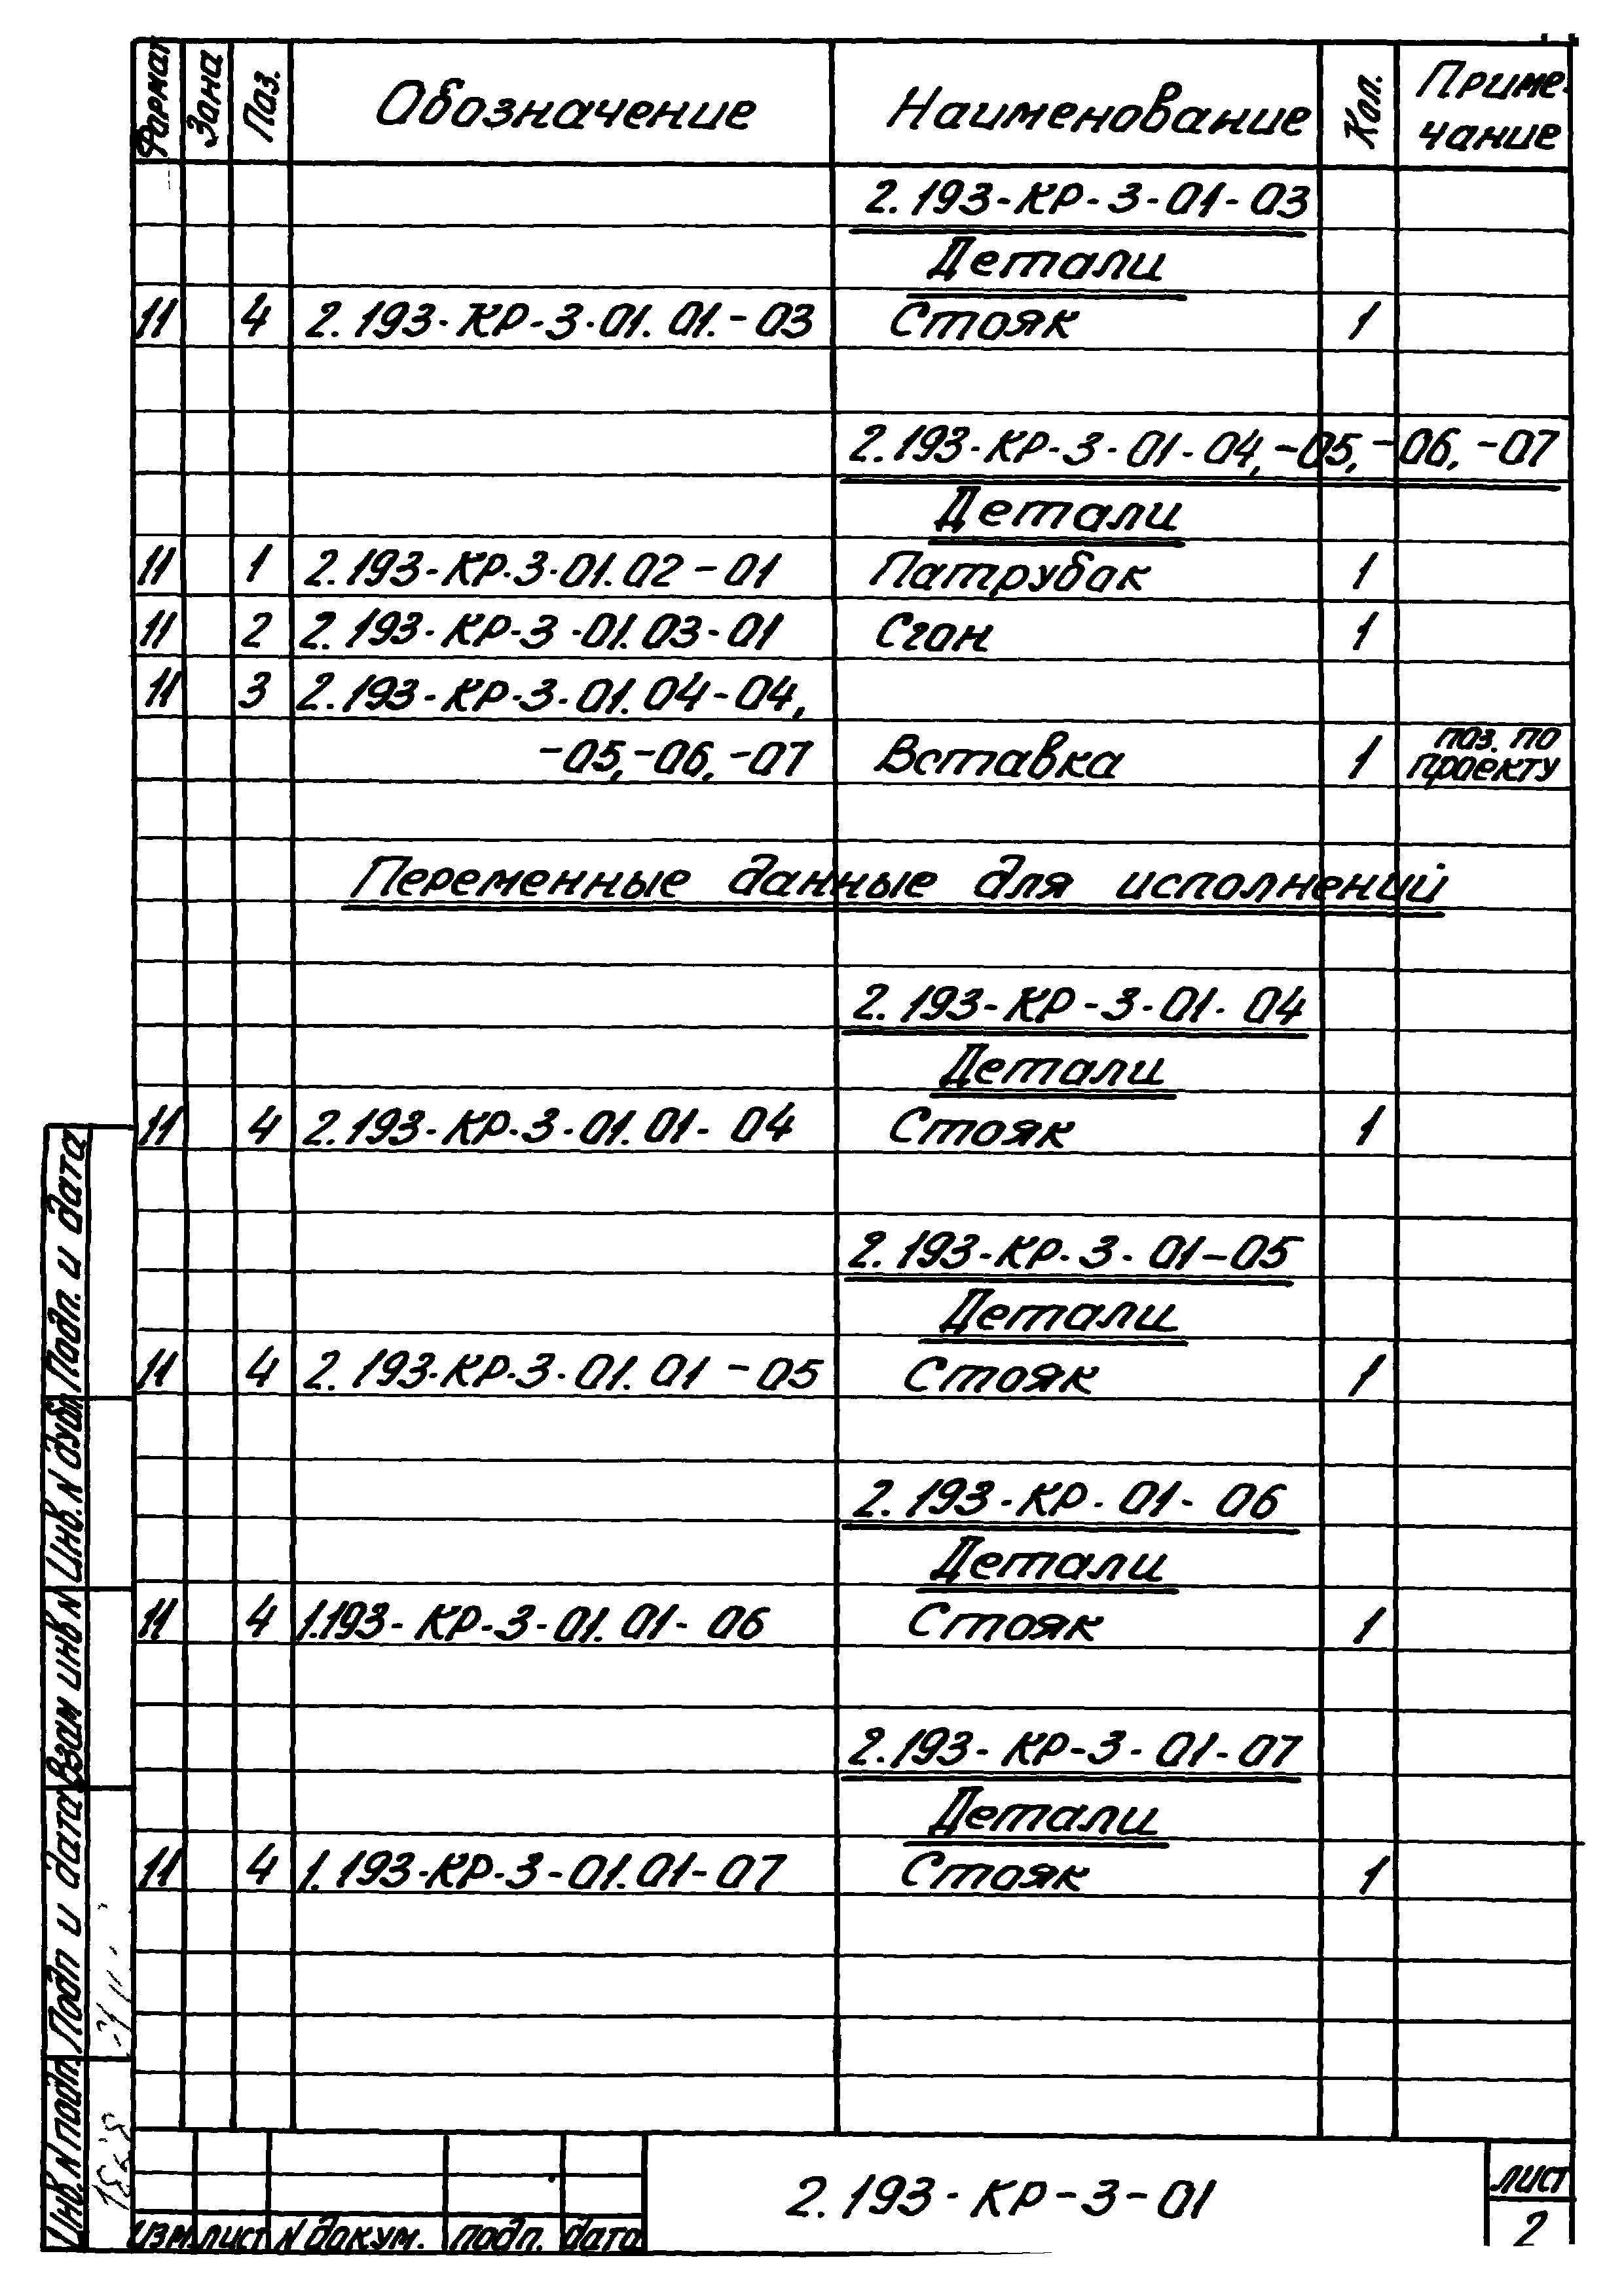 Формат Зона Поз. Обозначение Наименование Кол. Приме-
чание
2.193-КР-3-01-03
Детали
11 4 2.193-КР-3-01.01.-03 Стояк 1
2.193-КР-3-01-04,-05,-06,-07
Детали
11 1 2.193-КР-3-01.02-01 Патрубок 1
11 2 2.193-КР-3-01.03-01 Сгон 1
11 3 2.193-КР-3-01.04-04,
-05,-06,-07 Вставка 1 поз. по
проекту
Переменные данные для исполнений
2.193-КР-3-01-04
Детали
11 4 2.193-КР-3-01.01-04 Стояк 1
2.193-КР-3-01-05
Детали
11 4 2.193-КР-3-01.01-05 Стояк 1
2.193-КР-01-06
Детали
11 4 1.193-КР-3-01.01-06 Стояк 1
2.193-КР-3-01-07
Детали
11 4 1.193-КР-3-01.01-07 Стояк 1
Подп. и дата
Инв. N дубл
Взам инв N
Подп и дата
Инв. N подл.
изм. лист N докум. подп. дата
2.193-КР-3-01
лист
2